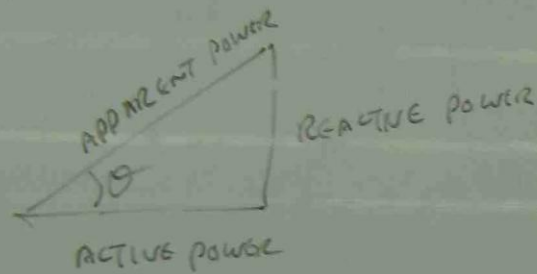 APPARENT POWER
REACTIVE POWER
θ
ACTIVE POWER